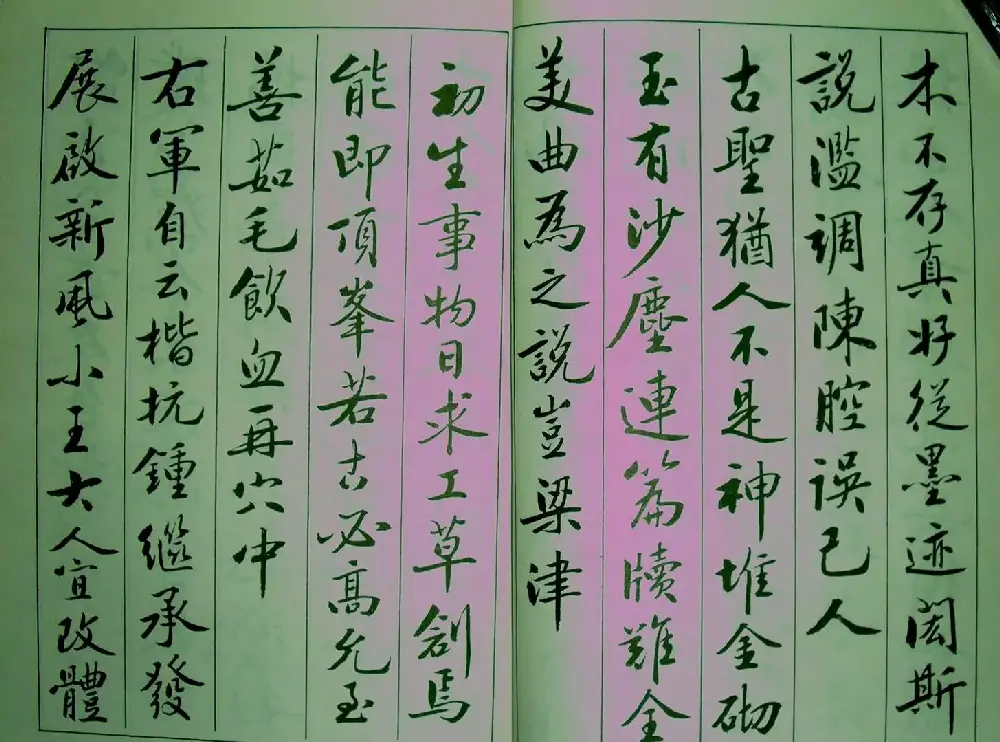 木不存真好從墨迹閎斯
說濫調陳腔誤己人
古聖猶人不是神堆金砌
玉有沙塵連篇牘難全
美曲為之說豈梁津
初生事物日求工草創焉
能即頂峯若古必高允至
善茹毛飲血再穴中
右軍自云楷抗鍾繼承發
展啟新風小王大人宜改體